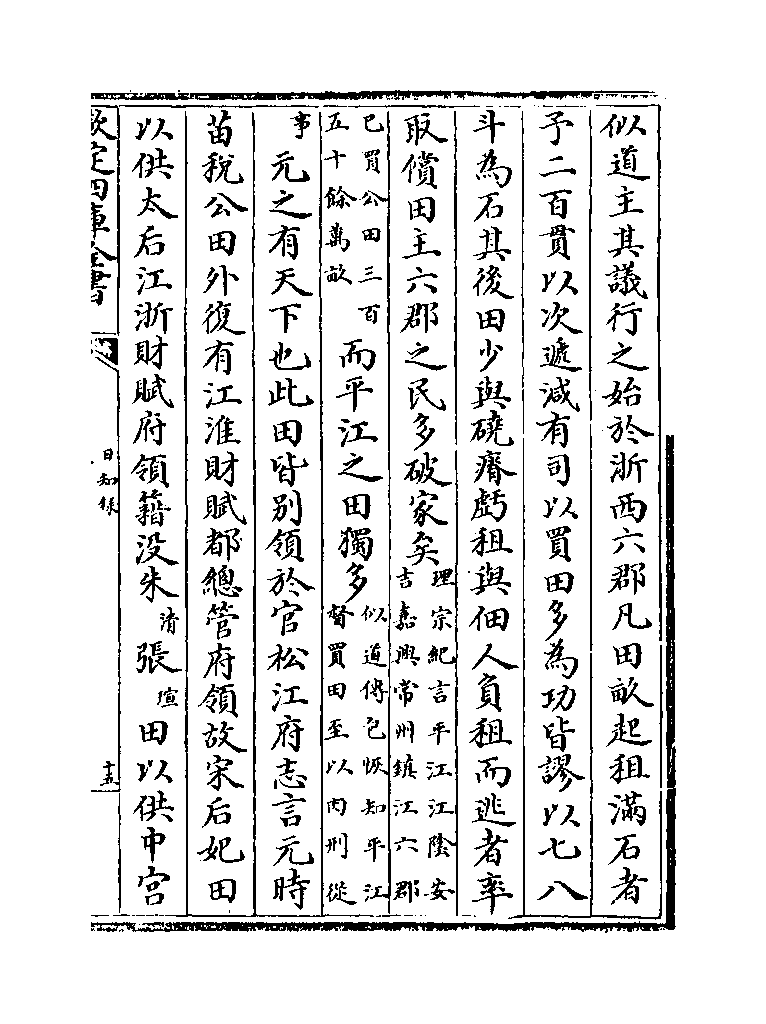 似道主其議行之始於浙西六郡凡田畝起租滿石者
予二百貫以次遞減有司以買田多為功皆謬以七八
斗為石其後田少與磽瘠虧租與佃人負租而逃者率
取償田主六郡之民多破家矣理宗紀言平江江陰安
吉嘉興常州鎮江六郡
已買公田三百
五十餘萬畝而平江之田獨多似道傳包恢知平江
督買田至以肉刑從
事元之有天下也此田皆別領於官松江府志言元時
苗稅公田外復有江淮財賦都總管府領故宋后妃田
以供太后江浙財賦府領籍没朱清張瑄田以供中宮
欽定四庫全書
日知録
十五